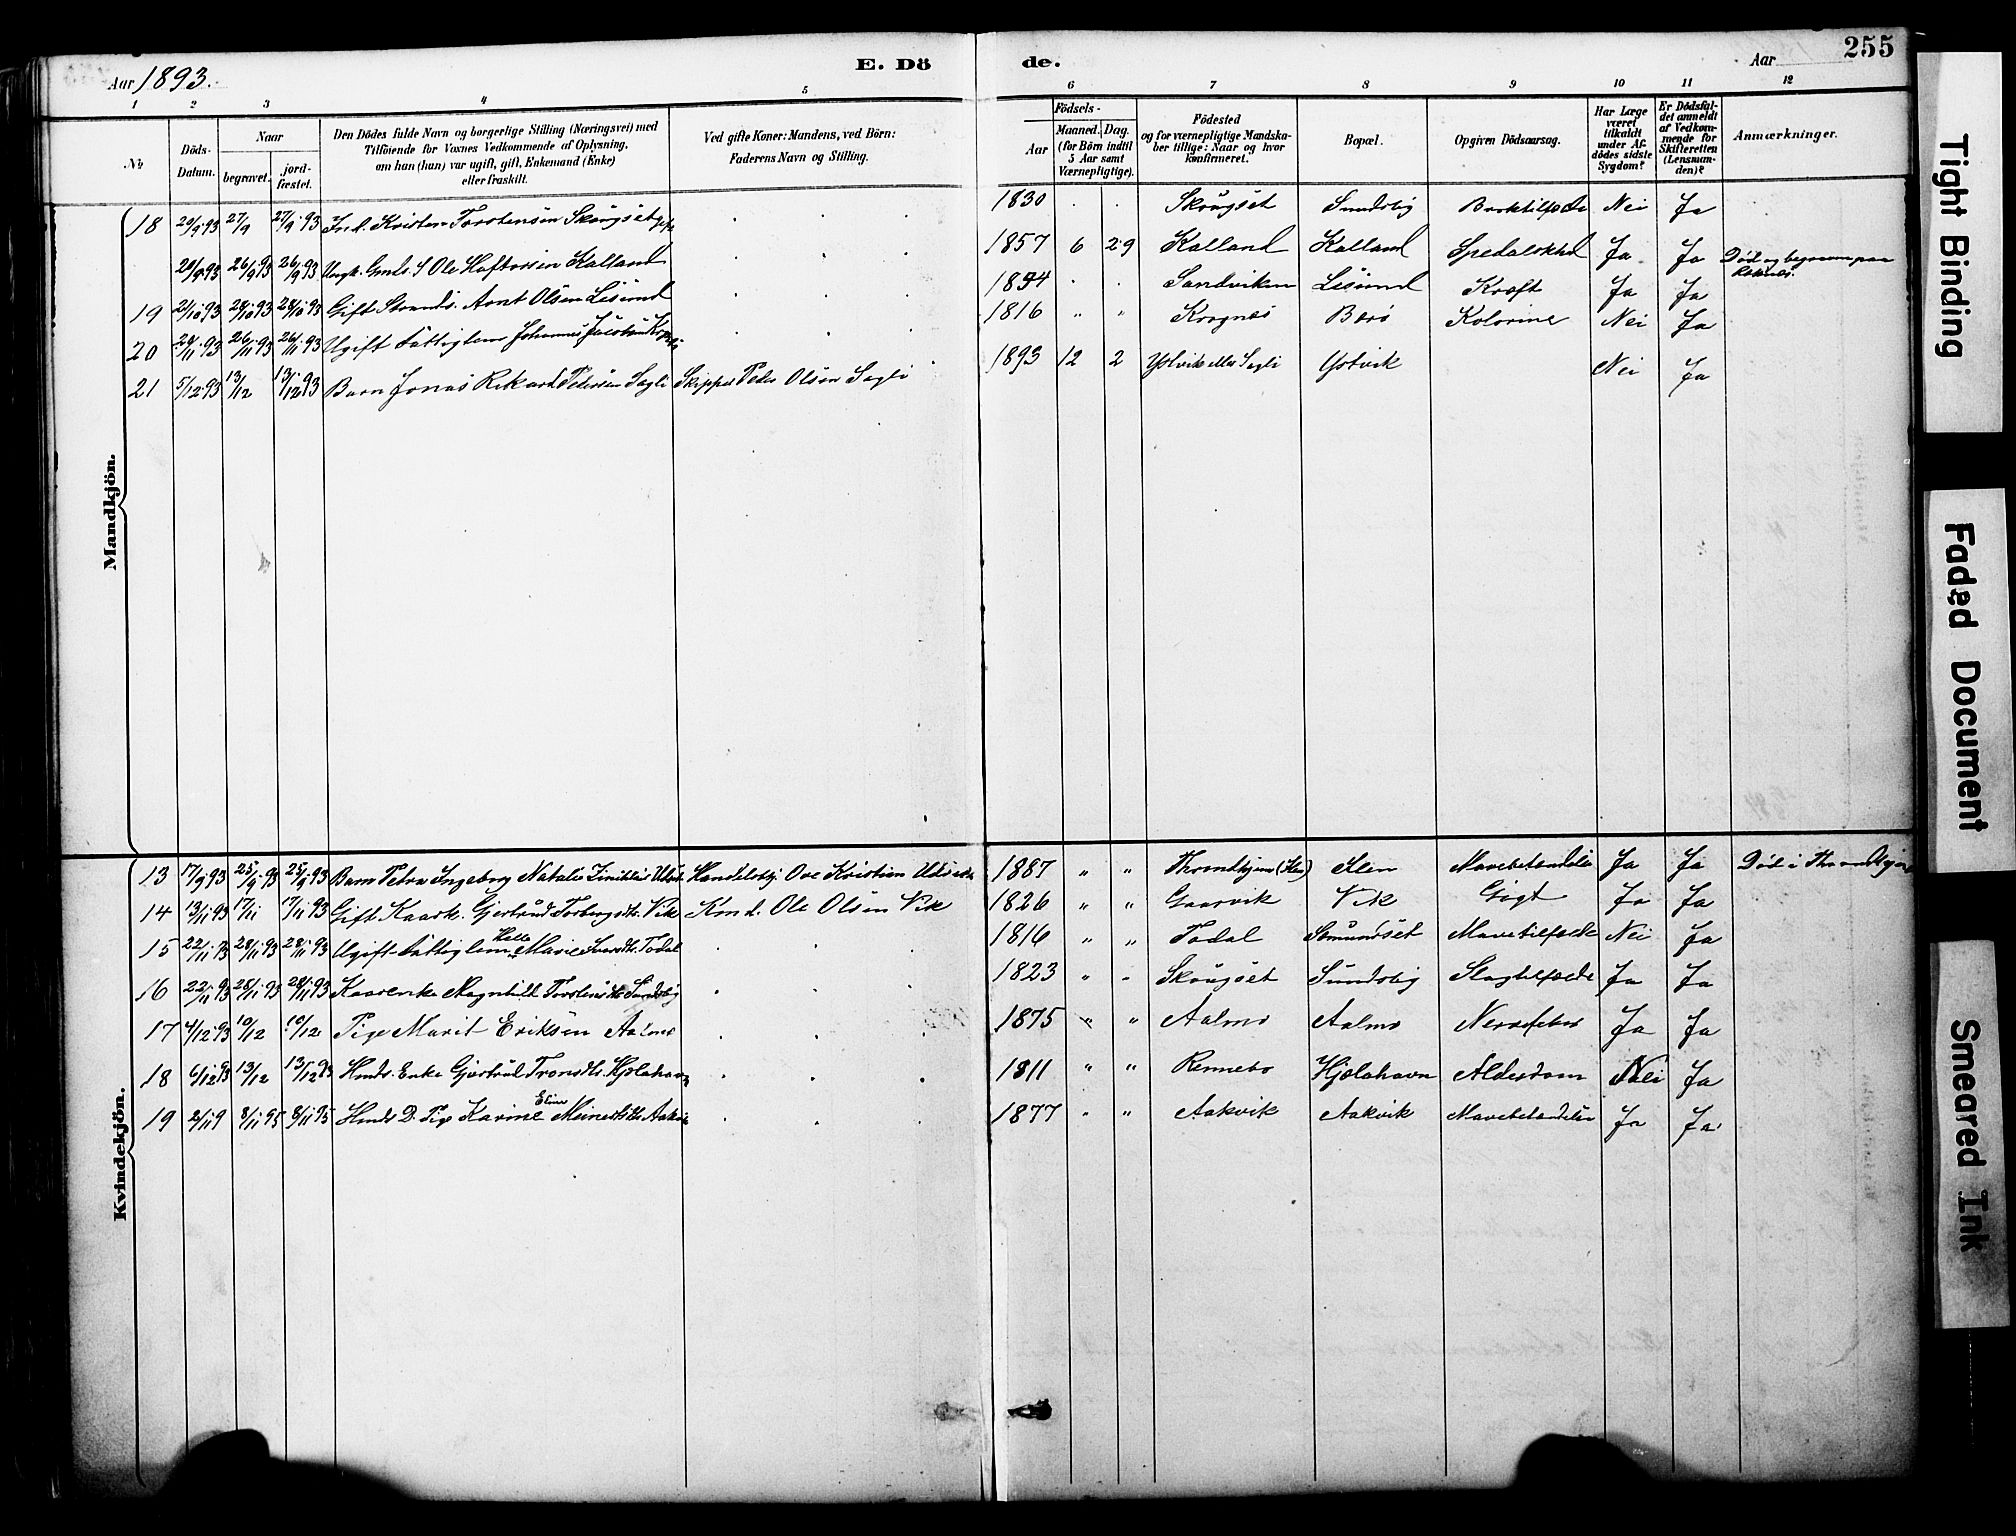 Aar 1893.
E. Döde.
Aar
255
1 2 3 4 5 6 7 8 9 10 11 12
№
Döds-Datum.
Naar
begravet.
jordfæstet.
Den Dödes fulde Navn og borgerlige Stilling (Næringsvei) med Tilföiende for Voxnes Vedkommende af Oplysning, om han (hun) var ugift, gift, Enkemand (Enke) eller fraskilt.
Ved gifte Koner: Mandens, ved Börn: Faderens Navn og Stilling.
Födsels-
Aar
Maaned. Dag.
(for Börn indtil 5 Aar samt Værnepligtige).
Födested
og for værnepligtige Mandskaber tillige: Naar og hvor konfirmeret.
Bopæl.
Opgiven Dödsaarsag.
Har Læge været tilkaldt under Afdödes sidste Sygdom?
Er Dödsfaldet anmeldt af Vedkommende for Skifteretten (Lensmanden)?
Anmærkninger.
Mandkjön.
18 20/9 93 27/9 27/9 93 Ind. Kristen Torstensen Skaugset 1830 Skougset Sundsbig Nei Ja
26/9 93 26/9 93 Ungk. Ole Haftorsen Kalland 1857 6 29 Kalland Kalland Spedalskhd Ja Ja Död og begraven paa Reknæs
19 21/10 93 28/10 93 28/10 93 Gift Strands. Arnt Olsen Lisund Sandviken Lisund Kræft Ja Ja
20 20/11 93 26/11 93 26/11 93 Ugift Fattiglem Johannes Jacobsen 1816 Krognes Bærø Kolerine Nei Ja
21 5/12 93 13/12 13/12 93 Barn Jonas Rikard Petersen Sagli Skipper Peder Olsen Sagli 1893 12 2 Ystvik eller Sagli Ystvik Nei Ja
Kvindekjön.
13 17/9 93 25/9 93 25/9 93 Barn Petra Ingeborg Natalie Handelsbj Ove Kristian 1887 " " Throndhjem Hen Ja Ja Död i Throndhjem
14 13/11 93 17/11 17/11 93 Gift Kaark. Gjertrud Torbergsdtr. Vik Kmd. Ole Olsen Vik 1826 " " Gaarvik Vik Gigt Ja Ja
15 22/11 93 28/11 93 28/11 93 Ugift Fattiglem Marie Todal 1816 " " Todal Somundset Mavetilfælde Nei Ja
16 22/11 93 28/11 93 28/11 93 Kaarenke Magnhild Torstensdtr Sundsbig 1823 " " Skougset Sundsbig Slagtilfælde Ja Ja
17 4/12 93 10/12 10/12 Pige Marit Eriksen Aalmo 1875 " " Aalmo Aalmo Nervefeber Ja Ja
18 6/12 93 13/12 13/12 93 Hmds. Enke Gjertrud Tronsdtr. Hjelahavn 1811 " " Rennebo Hjelahavn Alderdom Nei Ja
19 2/11 9 8/11 95 8/11 95 Hmds D. Pige Karine Eline Meinertsdtr Aakvik 1877 " " Aakvik Aakvik Ja Ja
Tight Binding
Faded Document
Smeared Ink